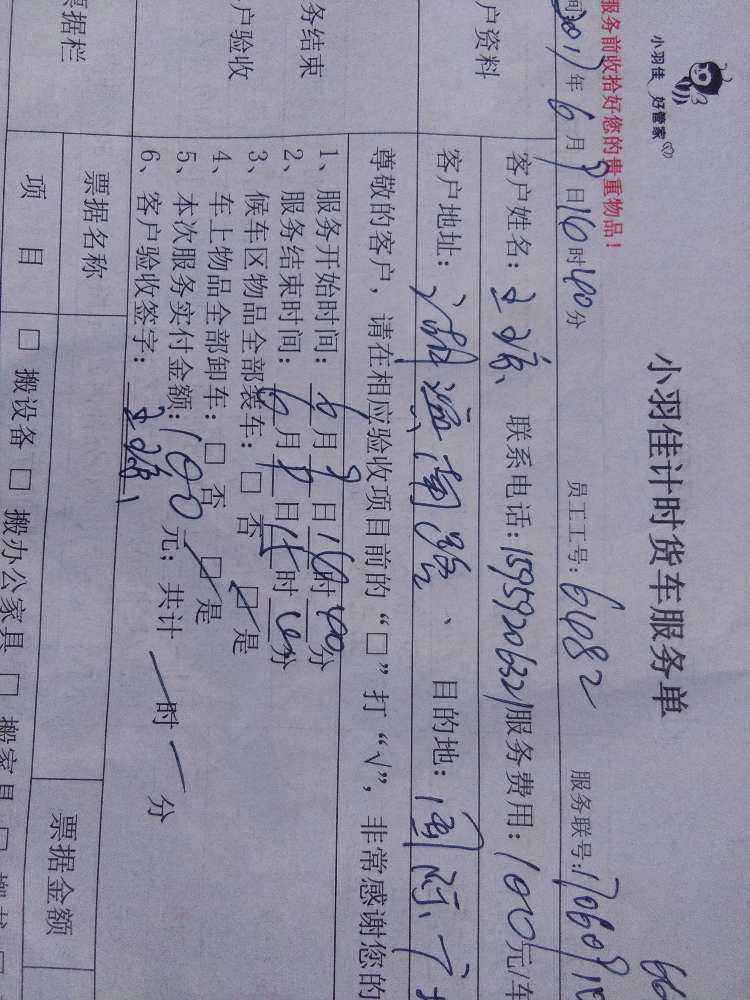 小羽佳 好管家
服务前收拾好您的贵重物品！
小羽佳计时货车服务单
间2017年6月9日16时40分 员工工号：6482 服务联号：
户资料
客户姓名： 联系电话：15959206321 服务费用：100元/车
客户地址：湖滨南路、 目的地：国际广
尊敬的客户，请在相应验收项目前的“□”打“√”，非常感谢您的
务结束
户验收
1、服务开始时间：6月9日16时40分
2、服务结束时间：6月9日 时 分
3、候车区物品全部装车：□ 否 □ 是
4、车上物品全部卸车：□ 否 □ 是
5、本次服务实付金额：100元；共计 一时一分
6、客户验收签字：
票据栏
票据名称 票据金额
项 目 □ 搬设备 □ 搬办公家具 □ 搬家具 □